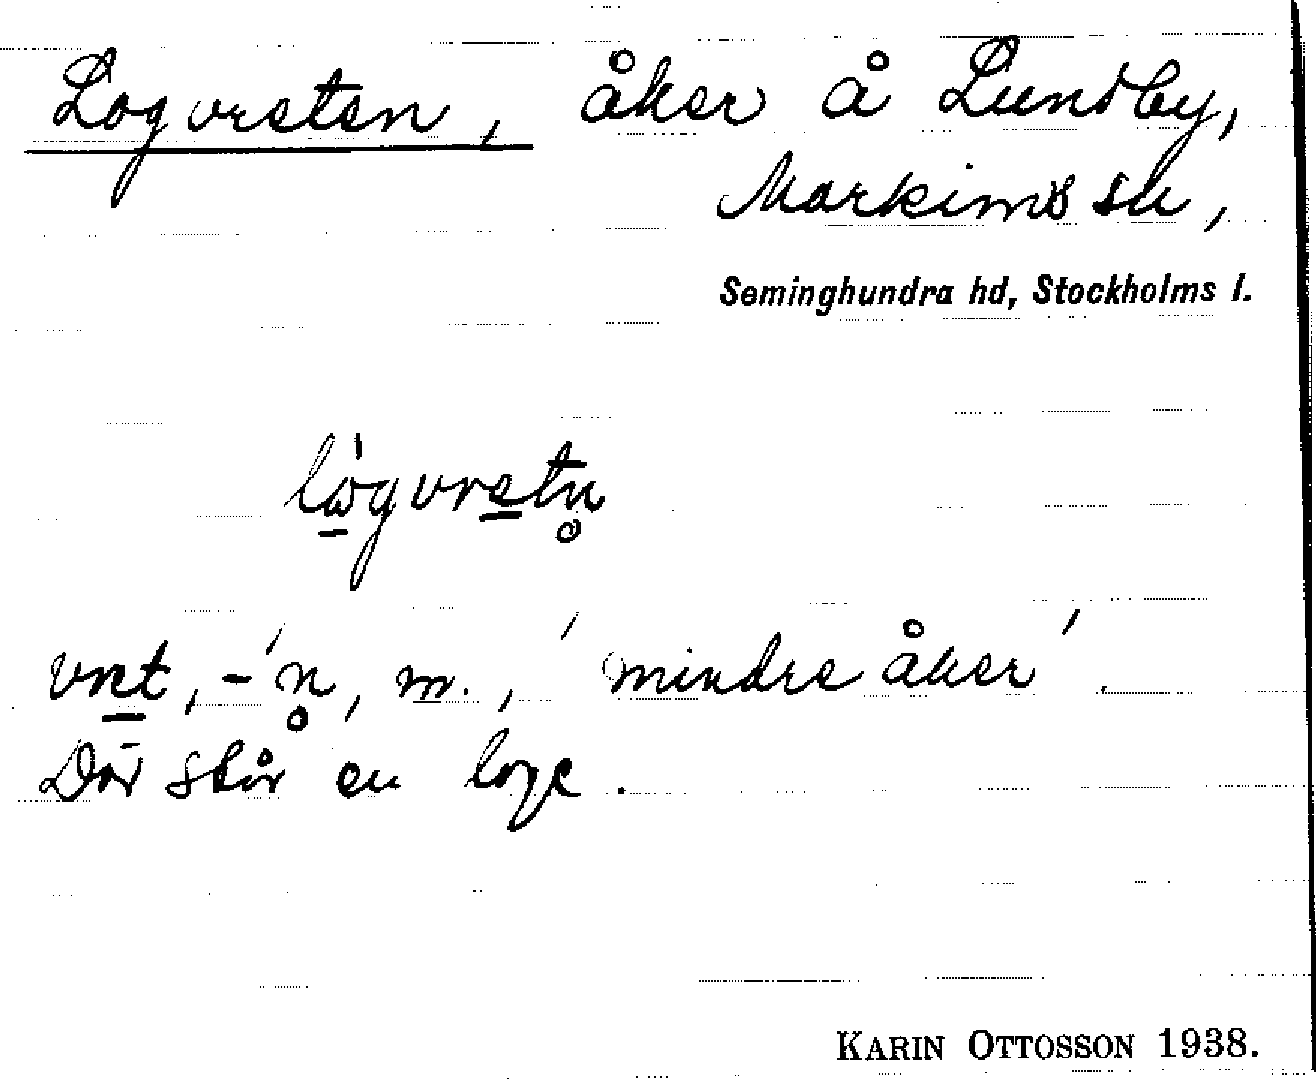 Logvreten, åker å Lundby,
Markims sn,
Seminghundra hd, Stockholms l.
lo̲gvre̲tn̥
vre̲t, -'n̥, m., 'mindre åker'.
Där står en loge.
KARIN OTTOSSON 1938.